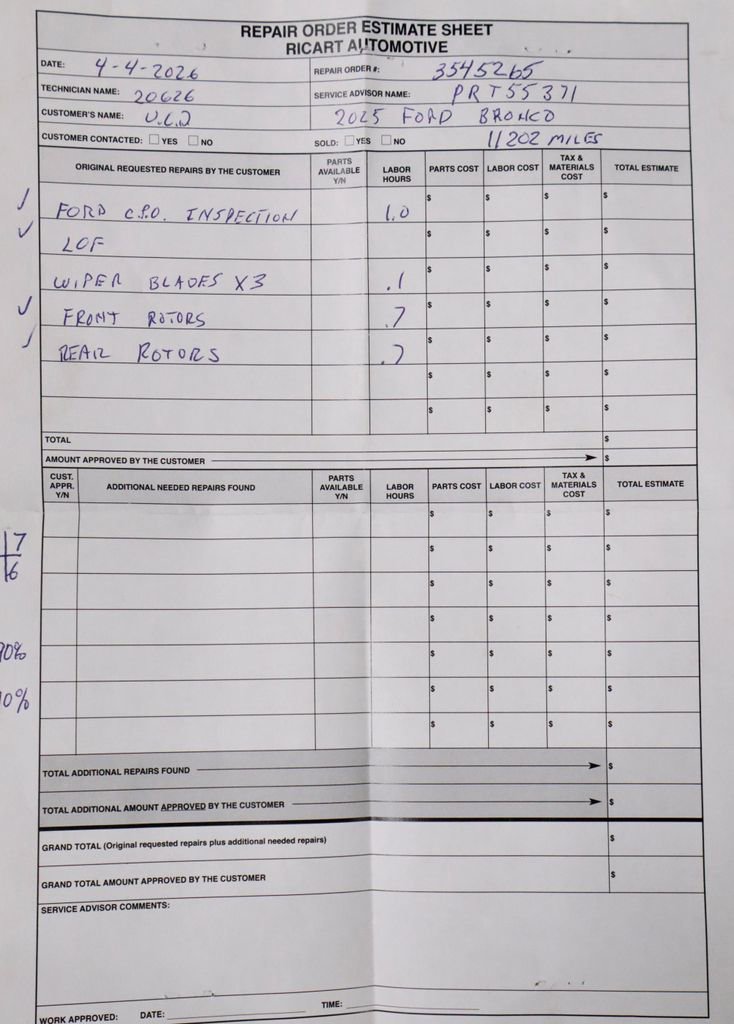 REPAIR ORDER ESTIMATE SHEET
RICART AUTOMOTIVE
DATE: 4-4-2026 REPAIR ORDER #: 3545265
TECHNICIAN NAME: 20626 SERVICE ADVISOR NAME: PRT55371
CUSTOMER'S NAME: 2025 FORD BRONCO
CUSTOMER CONTACTED: YES NO SOLD: YES NO 11202 MILES
ORIGINAL REQUESTED REPAIRS BY THE CUSTOMER PARTS AVAILABLE Y/N LABOR HOURS PARTS COST LABOR COST TAX & MATERIALS COST TOTAL ESTIMATE
✓ FORD C.P.O. INSPECTION 1.0 $ $ $ $
✓ LOF $ $ $ $
WIPER BLADES X3 .1 $ $ $ $
✓ FRONT ROTORS .7 $ $ $ $
✓ REAR ROTORS .7 $ $ $ $
$ $ $ $
$ $ $ $
TOTAL $
AMOUNT APPROVED BY THE CUSTOMER $
CUST. APPR. Y/N ADDITIONAL NEEDED REPAIRS FOUND PARTS AVAILABLE Y/N LABOR HOURS PARTS COST LABOR COST TAX & MATERIALS COST TOTAL ESTIMATE
$ $ $ $
17 $ $ $ $
6 $ $ $ $
$ $ $ $
$ $ $ $
$ $ $ $
$ $ $ $
TOTAL ADDITIONAL REPAIRS FOUND $
TOTAL ADDITIONAL AMOUNT APPROVED BY THE CUSTOMER $
GRAND TOTAL (Original requested repairs plus additional needed repairs) $
GRAND TOTAL AMOUNT APPROVED BY THE CUSTOMER $
SERVICE ADVISOR COMMENTS:
WORK APPROVED: DATE: TIME: